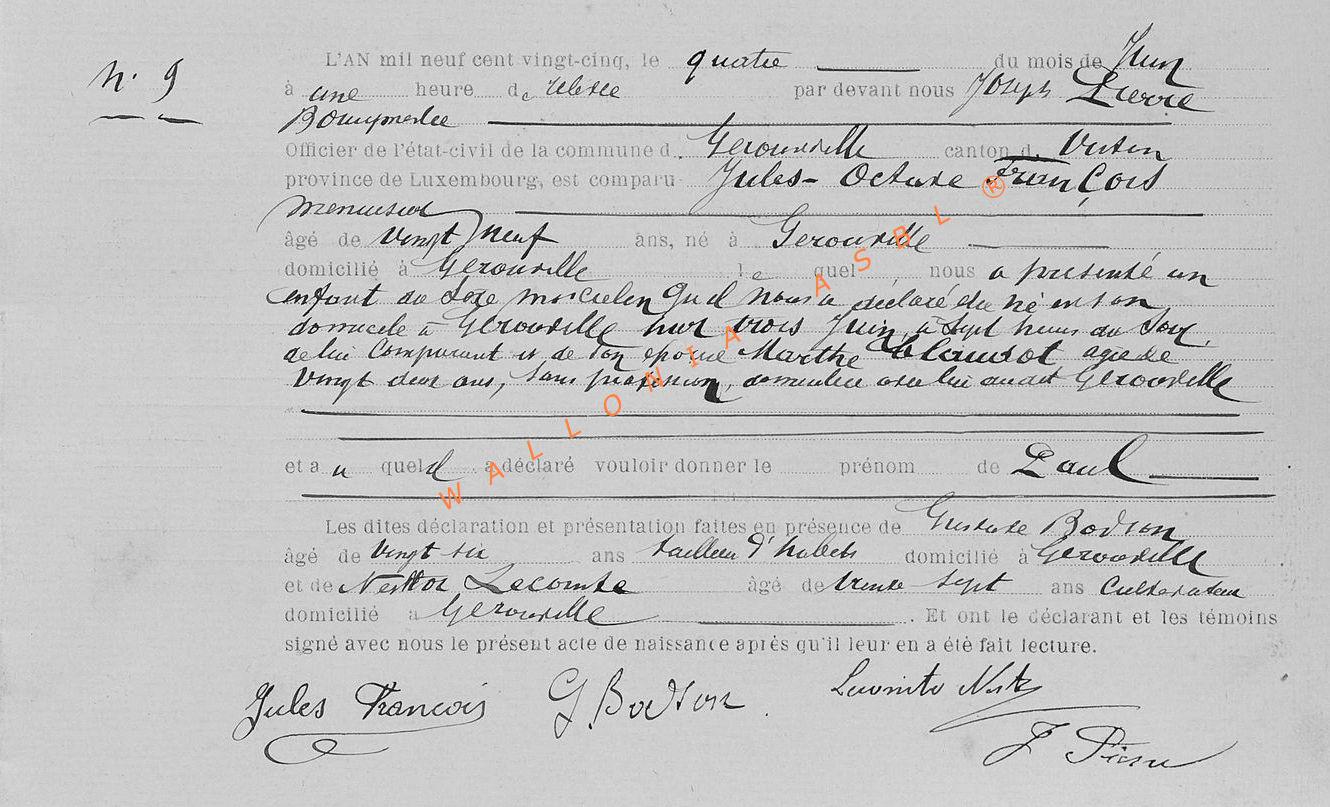 N° 9
L'AN mil neuf cent vingt-cinq, le quatre du mois de Juin
à une heure de relevée par devant nous Joseph Pierre
Bourgmestre
Officier de l'état-civil de la commune d. Gérouville canton d. Virton
province de Luxembourg, est comparu Jules-Octave François
menuisier
âgé de vingt neuf ans, né à Gerouville
domicilié à Gerouville le quel nous a présenté un
enfant du sexe masculin qu'il nous a déclaré être né en son
domicile à Gerouville hier trois Juin à sept heures du soir
de lui comparant et de son épouse Marthe agée de
vingt deux ans, sans profession, domiciliée avec lui audit Gerouville
et au quel il a déclaré vouloir donner le prénom de Paul
Les dites déclaration et présentation faites en présence de Gustave Bodson
âgé de vingt six ans tailleur d'habits domicilié à Gerouville
et de Nestor Lecomte âgé de trente sept ans Cultivateur
domicilié à Gerouville . Et ont le déclarant et les témoins
signé avec nous le présent acte de naissance après qu'il leur en a été fait lecture.
Jules François G. Bodson Lecomte Nestor
J Pierre
WALLONIA ASBL ®